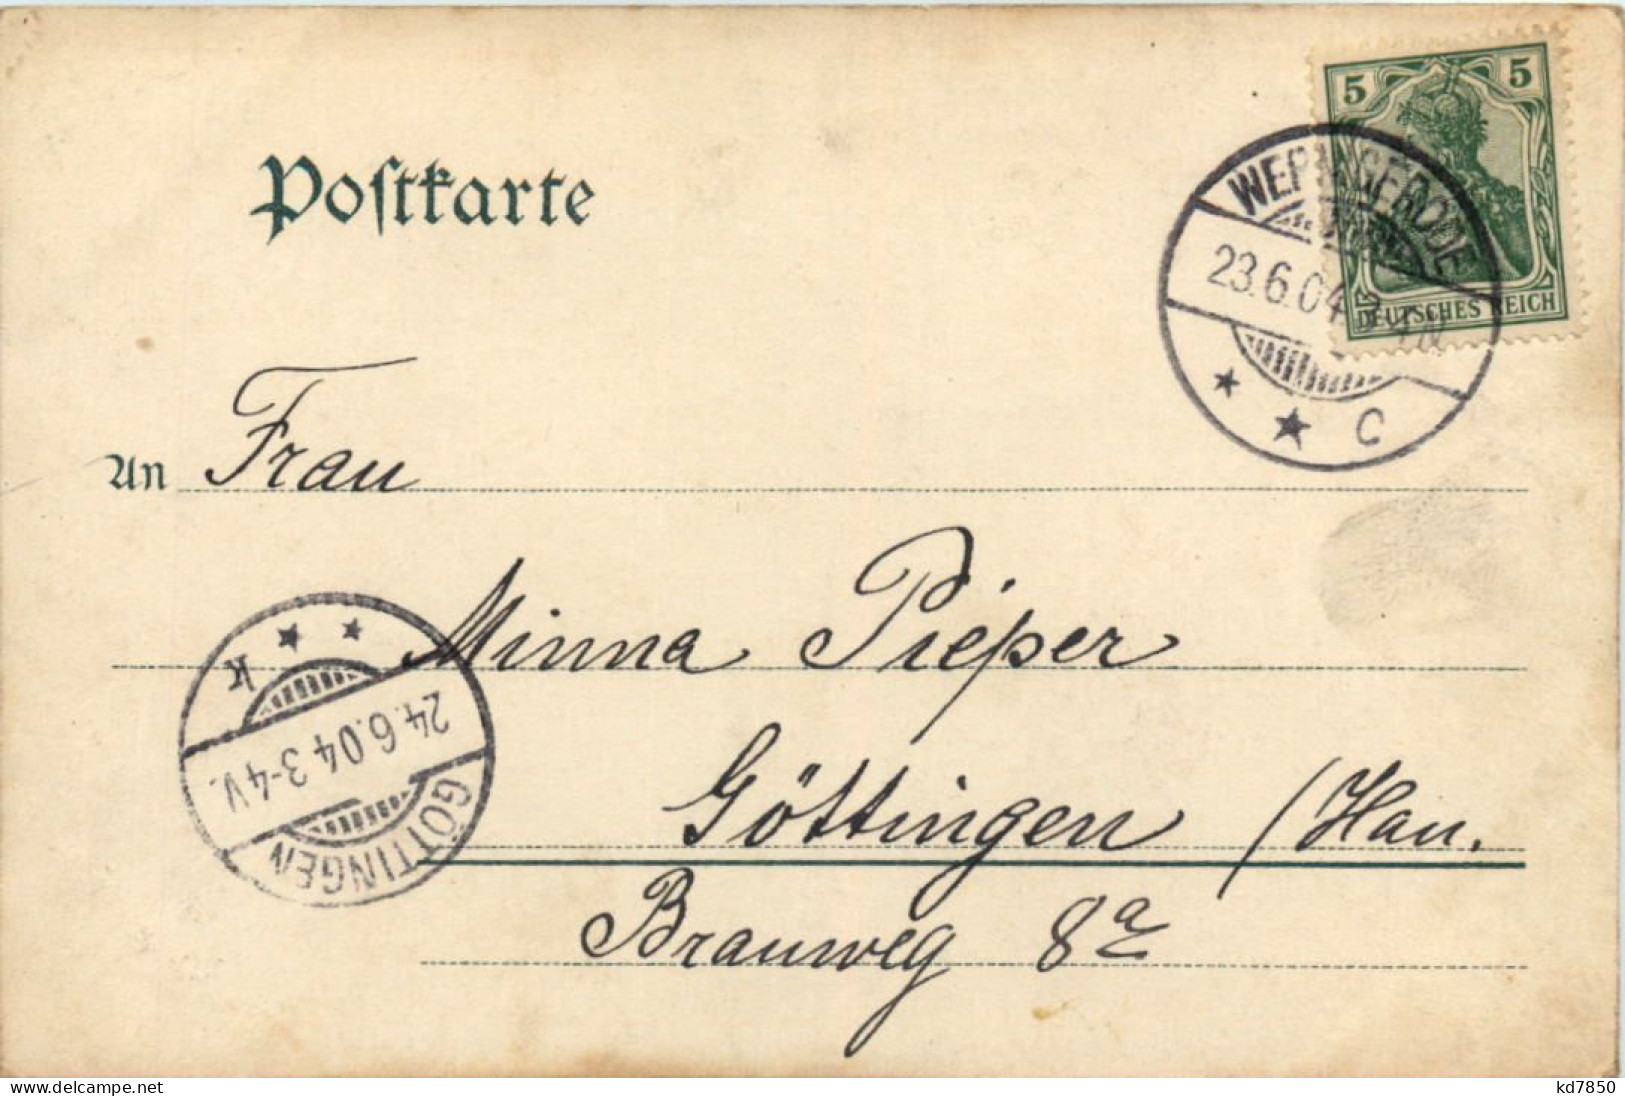 5 5
DEUTSCHES REICH
WERNIGERODE
23.6.04
C
Postkarte
An Frau
Minna Pieper
Göttingen (Han.
Brauweg 8a
K
24.6.04 3-4V.
GÖTTINGEN
www.delcampe.net
kd7850